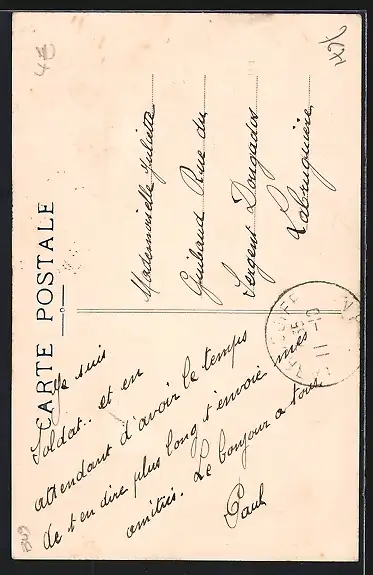 CARTE POSTALE
Mademoiselle Juliette
Guibaud Rue du
Sergent Dougados
Labruguière
Je suis
Soldat.. et en
attendant d'avoir le temps
de t'en dire plus long t'envoie mes
amitiés. Le bonjour a tous.
Paul
4E